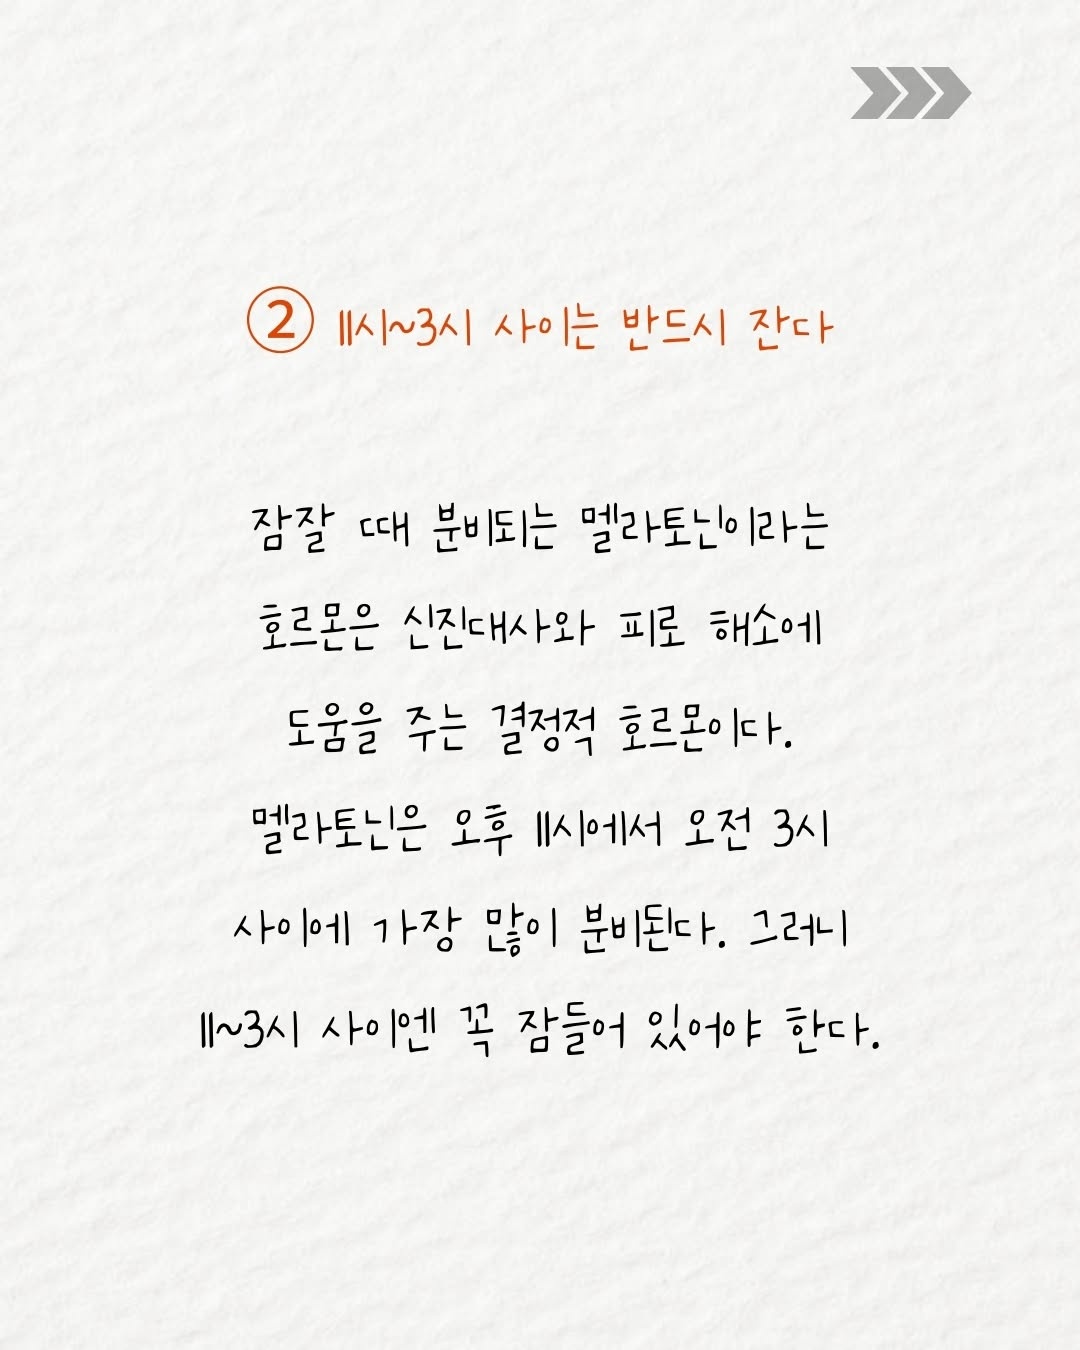 ② 11시~3시 사이는 반드시 잔다
잠잘 때 분비되는 멜라토닌이라는
호르몬은 신진대사와 피로 해소에
도움을 주는 결정적 호르몬이다.
멜라토닌은 오후 11시에서 오전 3시
사이에 가장 많이 분비된다. 그러니
11~3시 사이엔 꼭 잠들어 있어야 한다.